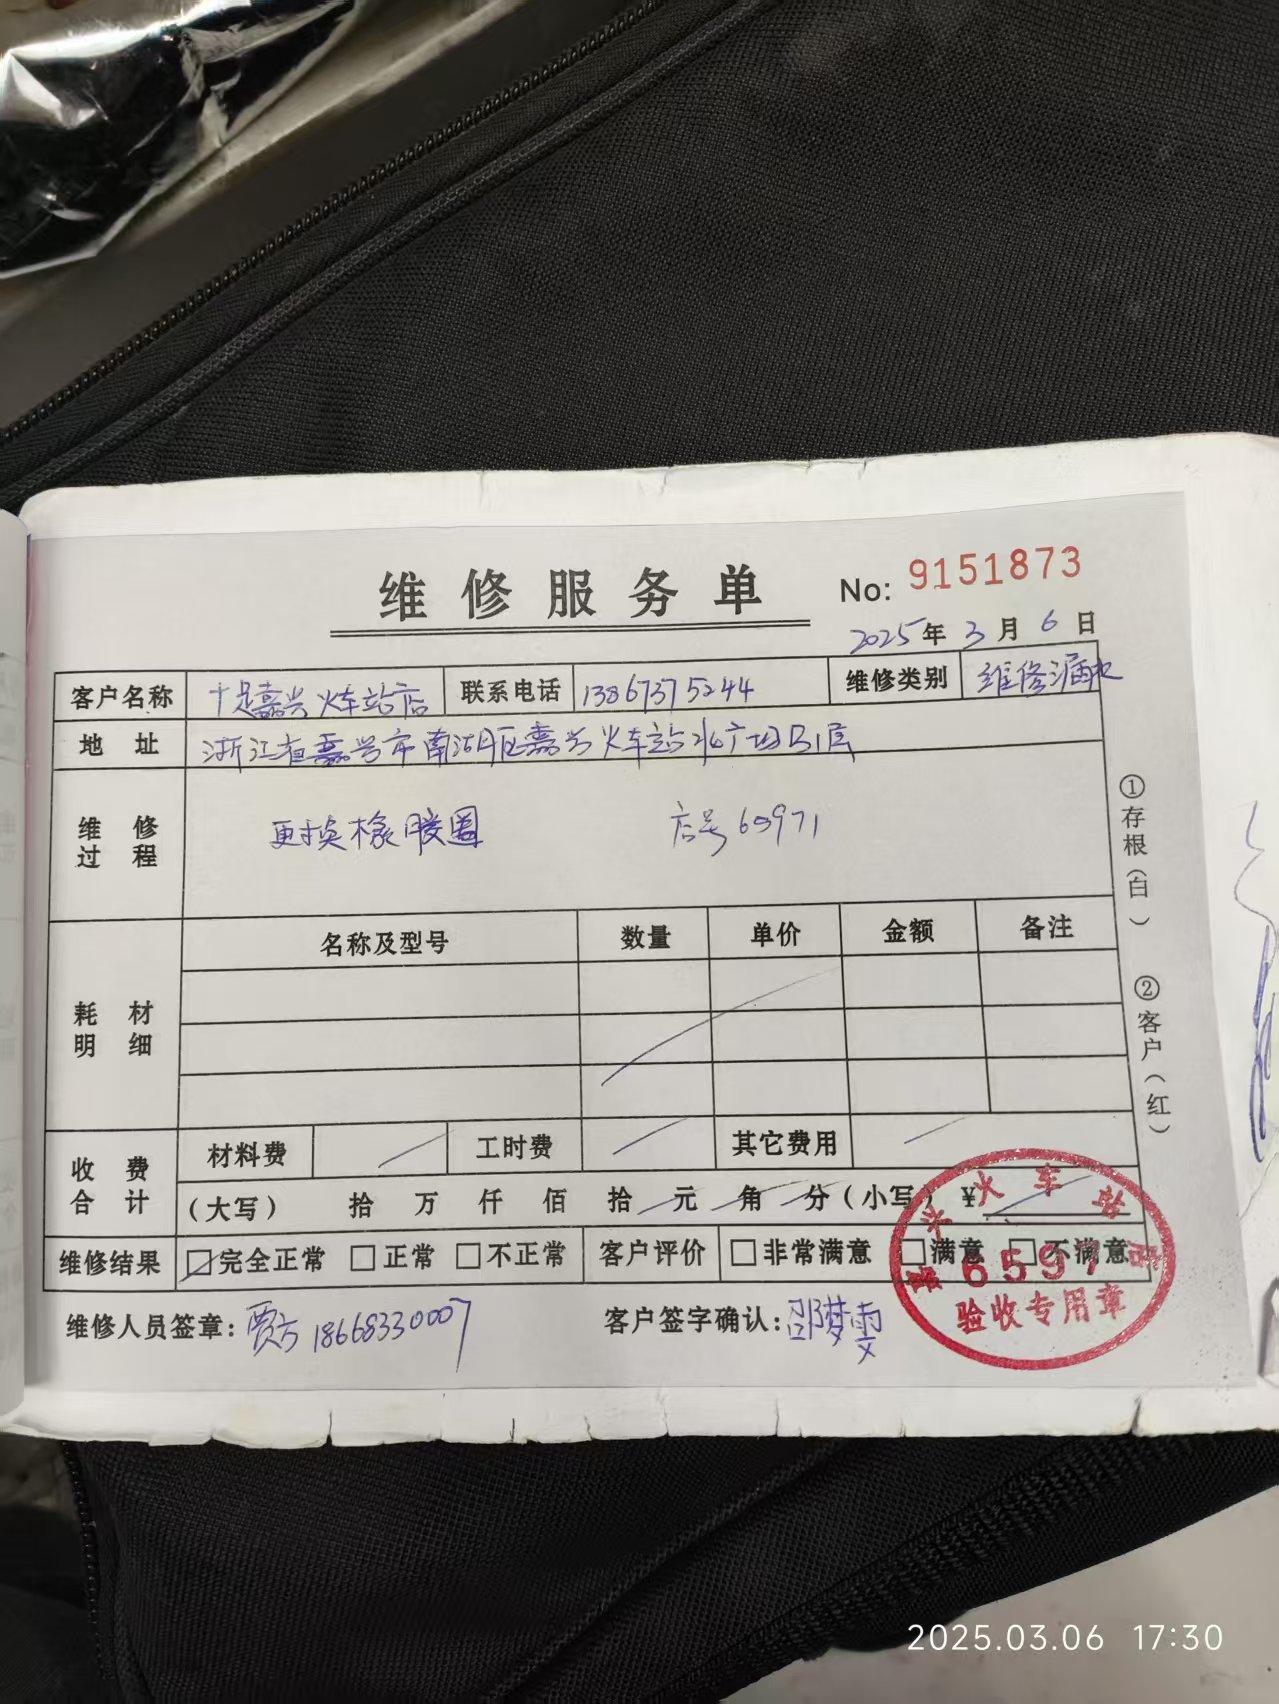 维修服务单 No: 9151873
2025年 3月 6日
客户名称 十足嘉兴火车站店 联系电话 13867375244 维修类别 维修漏水
地址 浙江省嘉兴市南湖区嘉兴火车站北广场B1层
维修过程 更换橡胶圈 店号65971
耗材明细 名称及型号 数量 单价 金额 备注
收费合计 材料费 工时费 其它费用
(大写) 拾 万 仟 佰 拾 元 角 分 (小写) ¥
维修结果 □完全正常 □正常 □不正常 客户评价 □非常满意 □满意 □不满意
维修人员签章: 贾方 18668330007 客户签字确认: 邵梦雯
①存根(白) ②客户(红)
嘉兴火车站店
6597
验收专用章
2025.03.06 17:30